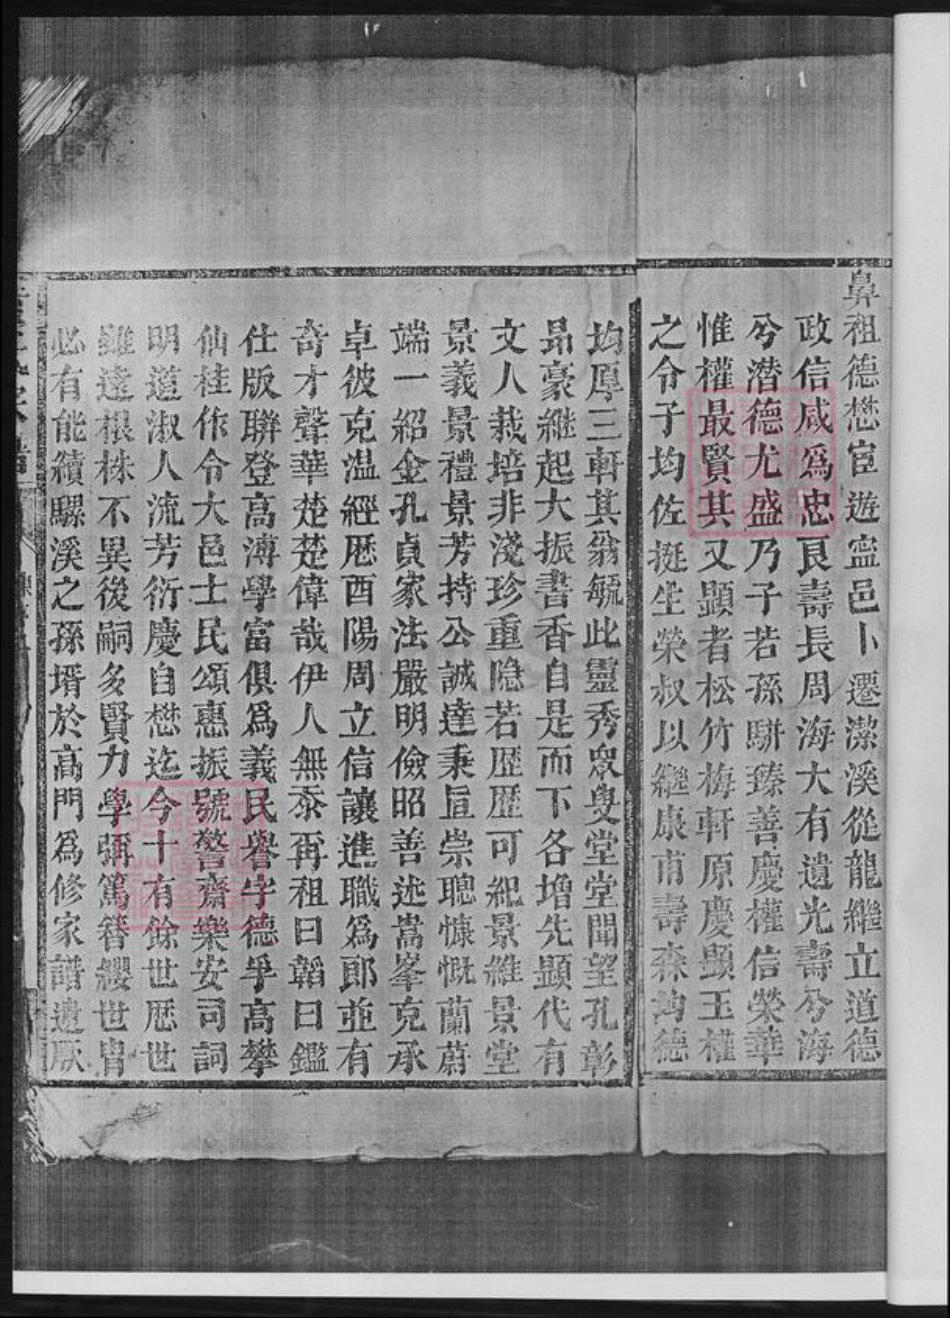 鼻祖德懋宦遊寍邑卜遷潔溪從龍繼立道德
政信咸爲忠良壽長周海大有遺光壽兮海
兮潛德尤盛乃子若孫駢臻善慶權信榮華
惟權最賢其又顯者松竹梅軒原慶顕玉權
之令子均佐挺生榮叔以繼康甫壽森沟德
均厚三軒其翁毓此靈秀衆叟堂堂聞望孔彰
昂豪繼起大振書香自是而下各增先顕代有
文人栽培非淺珍重隐若歴歴可紀景維景堂
景義景禮景芳持公誠達秉亘崇聰慷慨蘭蔚
端一紹金孔貞家法嚴明儉昭善述嵩峯克承
卓彼克温經厯酉陽周立信讓進職爲郎並有
奇才聲華楚楚偉哉伊人無忝再祖曰韜曰鑑
仕版聨登高溥學富俱爲義民譽字德爭高攀
仙桂作令大邑士民頌惪振號警齋樂安司詞
明道淑人流芳衍慶自懋迄今十有餘世厯世
雖遠根株不異後嗣多賢力學彌篤簪纓世胄
必有能續騾溪之孫壻於高門爲修家譜遺厥